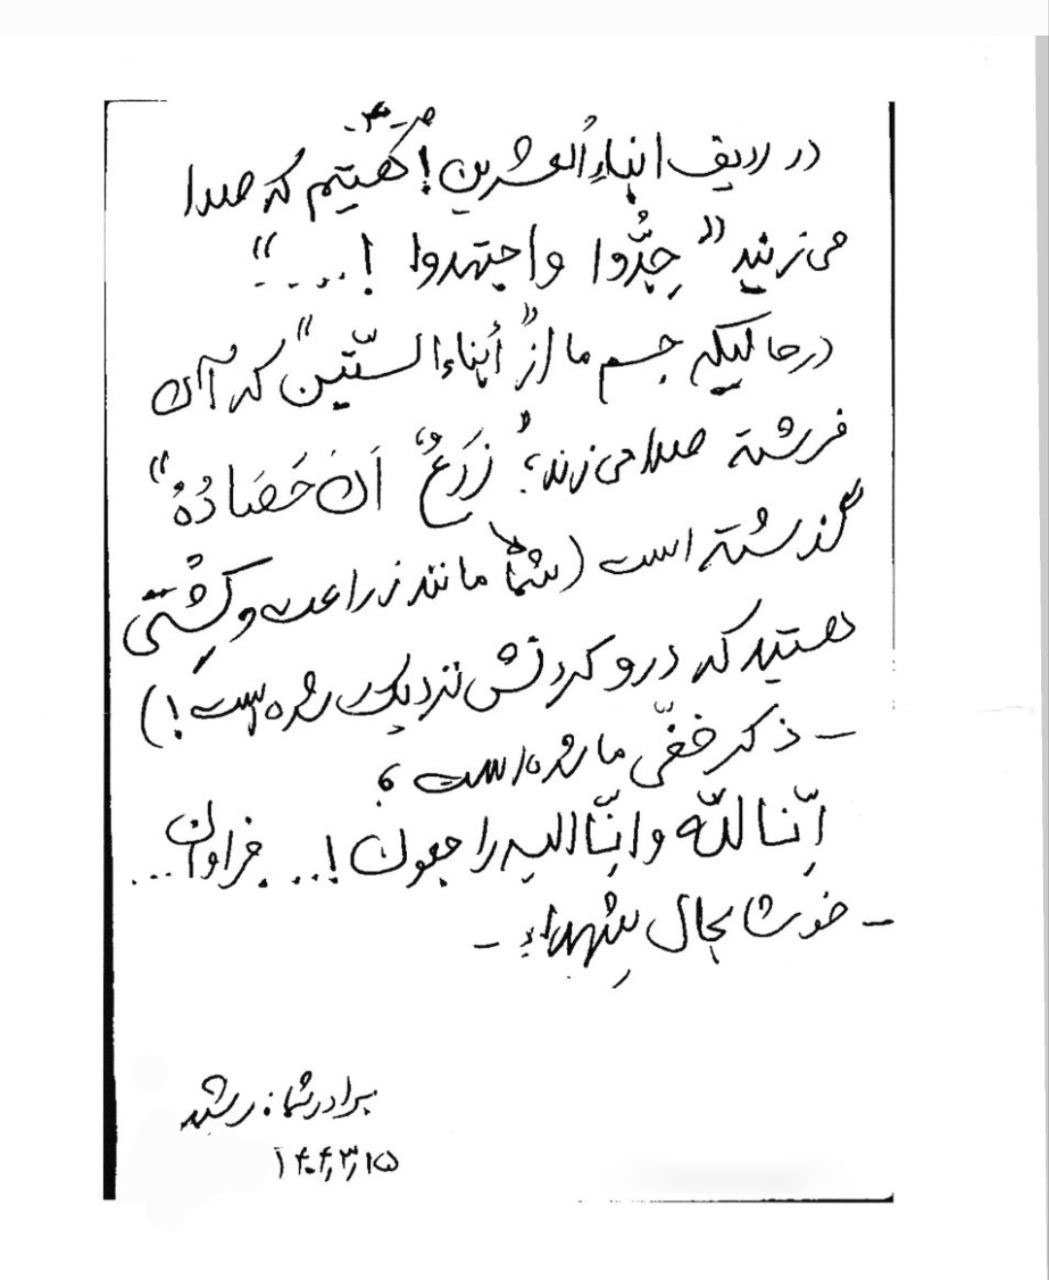 -۳-
در ردیف ابناءُ العشرین! گفتیم که صدا
می‌زنند "جِدُّوا واجتهدوا !....."
درحالیکه جسم ما از "أبناء السّتّین" که آن
فرشته صدا می‌زند؛ "زَرَعٌ اَنَ حَصَادُهُ"
گذشته است (شما مانند زراعت و کِشتی
هستید که درو کردنش نزدیک شده است!)
- ذکر خفّی ما شده است؛
اِنّا للّه وانّا الیه راجعون !... فراوان...
- خوشا بحال شهداء -
برادر شما: رشید
۱۴۰۴,۳,۱۵